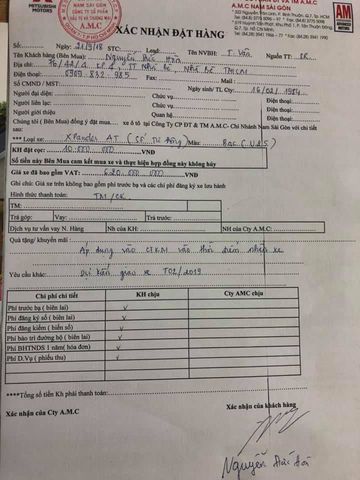 MITSUBISHI
MOTORS
NAM SÀI GÒN
A.M.C
A.M.C NAM SÀI GÒN
ADVANCED
XÁC NHẬN ĐẶT HÀNG
Số: Ngày: 21/9/18 STC: Lead: Tên NVBH: T. Vân
Tên Khách Hàng (Bên Mua): Nguyễn Đức Hòa Nguồn TT:
Địa chỉ: TT Nhà Bè, Nhà Bè TPHCM
Điện thoại: 0969 832 985
Số CMND / MST:
Người đại diện: Ngày sinh/ TL Cty: 16/02/1984
Người liên lạc: Chức vụ:
Người giới thiệu Quan hệ:
Chúng tôi ( Bên Mua) đồng ý đặt mua xe ô tô tại Công ty CP ĐT & TM A.M.C- Chi Nhánh Nam Sài Gòn với chi tiết sau:
*** Loại xe: Xpander AT (Số Tự động) Màu: Bạc (U25)
KH đặt cọc: 10.000.000 VNĐ
Số tiền này Bên Mua cam kết mua xe và thực hiện hợp đồng này không hủy
Giá xe đã bao gồm VAT: 620.000.000 VNĐ
Ghi chú: Giá xe trên không bao gồm phí trước bạ và các chi phí đăng ký xe lưu hành
Hình thức thanh toán: TM/CK
TM: CK:
Trả góp: Vay: Trả trước:
Dịch vụ tư vấn vay N. Hàng Nhu cầu của KH: Cty A.M.C:
Quà tặng/ khuyến mãi :
Áp dụng vào CTKM vào thời điểm nhận xe
Yêu cầu khác: Dự kiến giao xe T02/2019
Chi phí chi tiết KH chịu Cty AMC chịu
Phí trước bạ ( biên lai) ✓
Phí đăng ký số ( biên lai) ✓
Phí đăng kiểm ( biển số) ✓
Phí bảo trì đường bộ ( biên lai) ✓
Phí BHTNDS 1 năm( hóa đơn) ✓
Phí D.Vụ ( phiếu thu) ✓
****Tổng số tiền Kh phải thanh toán:
Xác nhận của Cty A.M.C Xác nhận của khách hàng
Nguyễn Đức Hòa